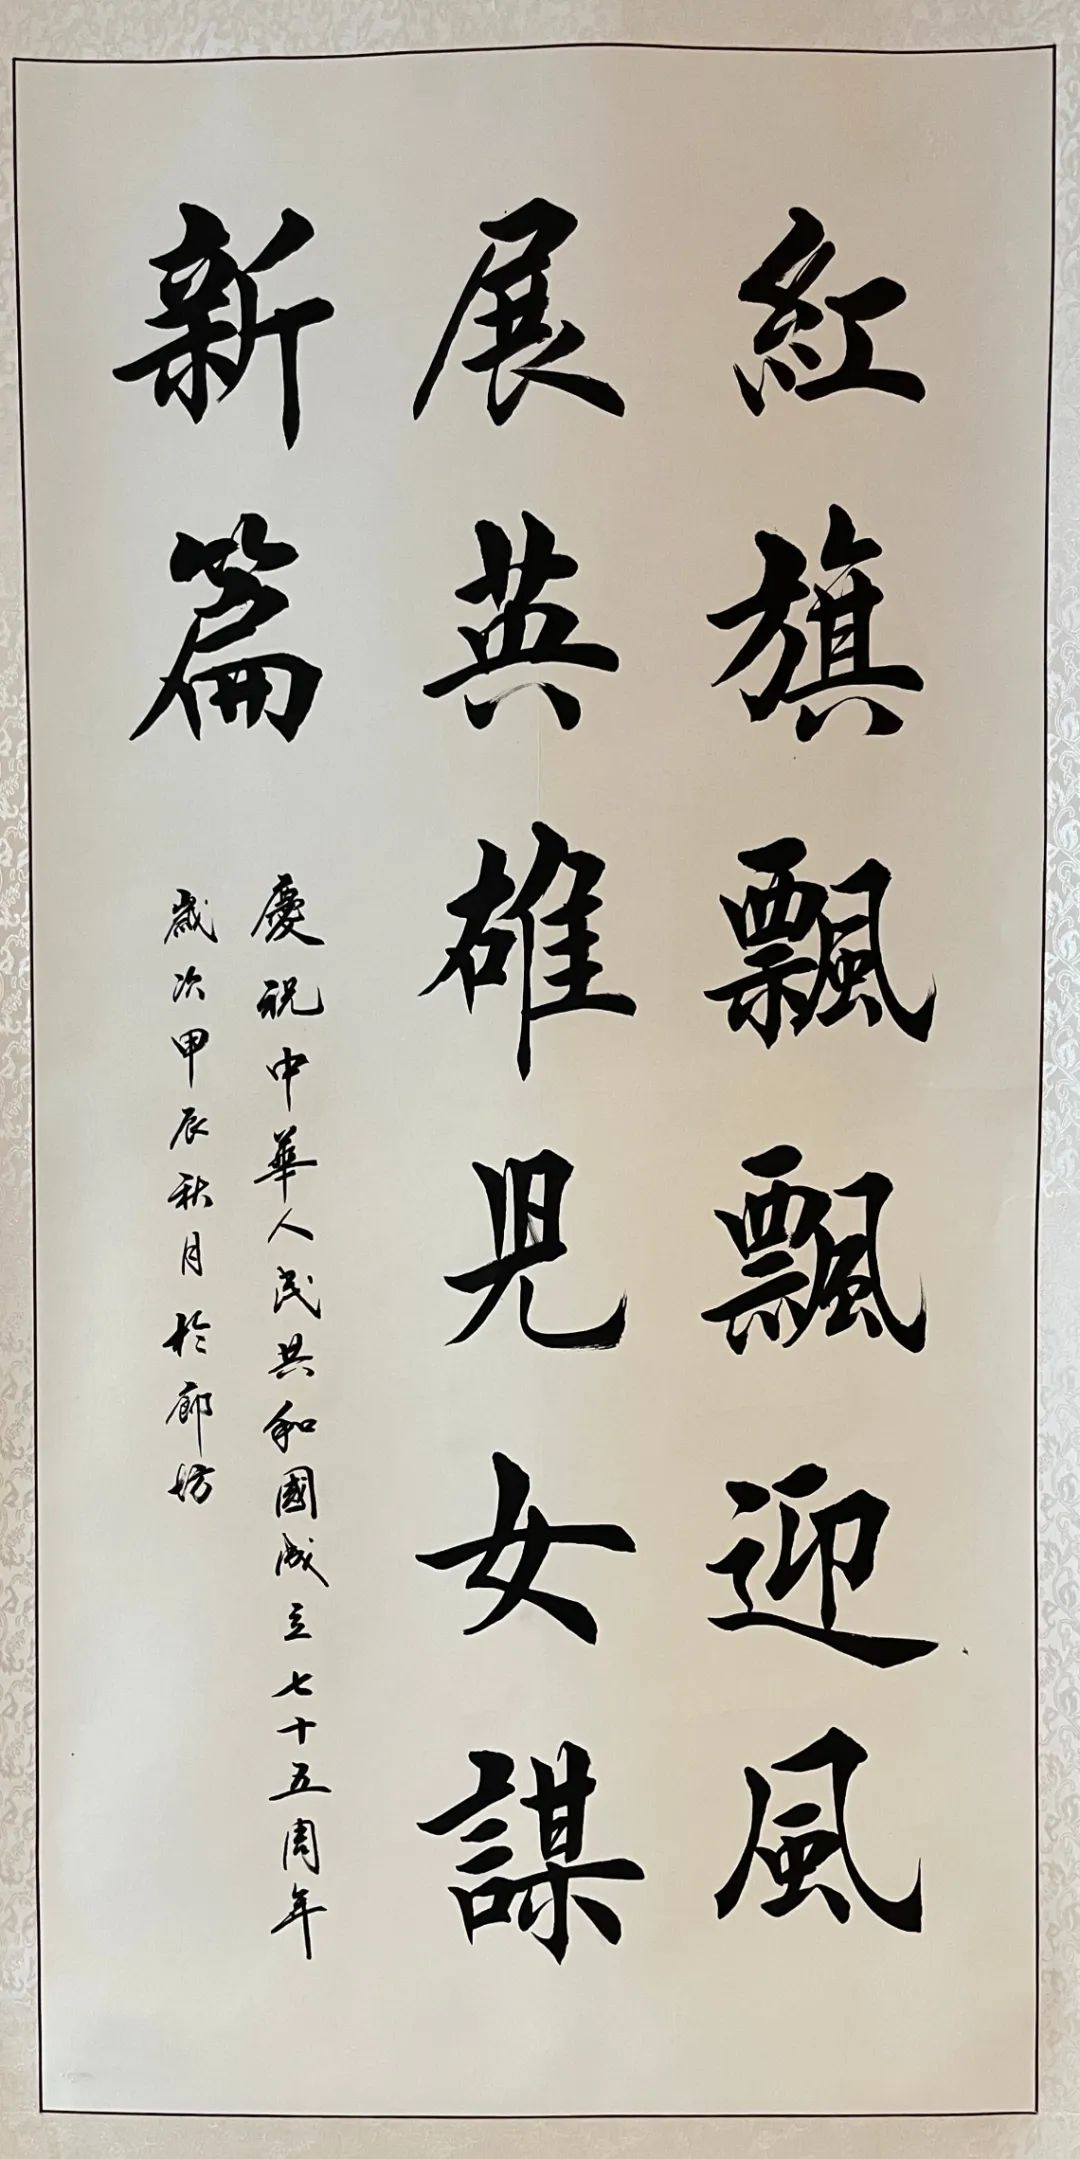 紅旗飄飄迎風
展英雄児女謀
新篇
慶祝中華人民共和國成立七十五周年
歲次甲辰秋月於廊坊